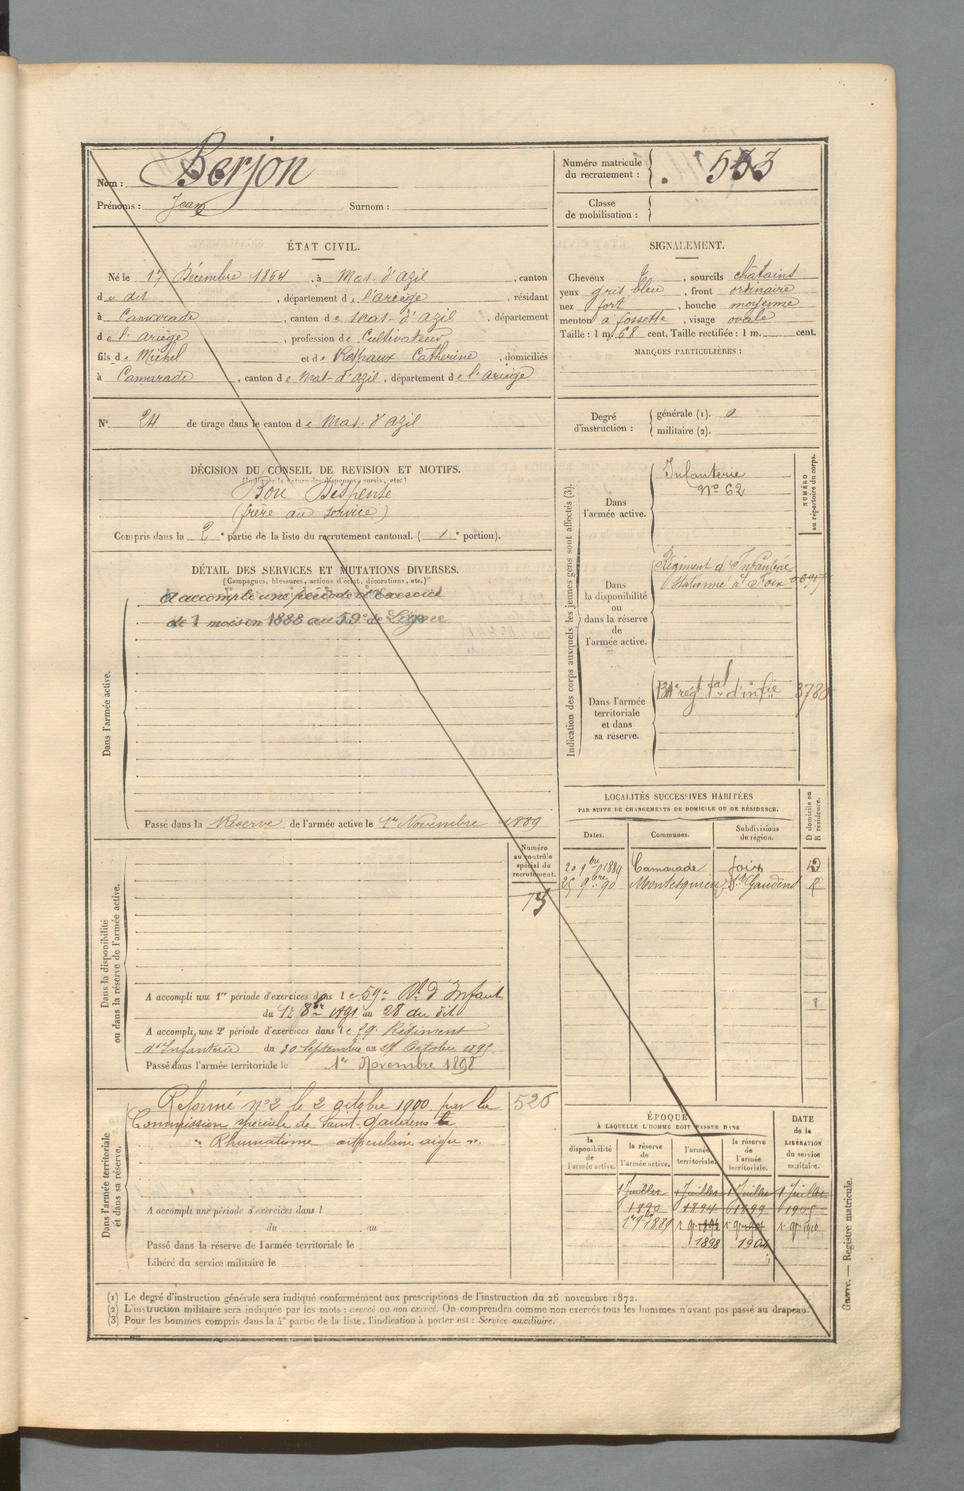 Nom : Berjon
Prénoms : Jean Surnom :
Numéro matricule du recrutement : 533
Classe de mobilisation :
ÉTAT CIVIL.
Né le 17 Décembre 1864, à Mas-d'Azil, canton
de dit, département de l'ariège, résidant
à Camarade, canton de Mas-d'Azil, département
de l'ariège, profession de Cultivateur
fils de Michel et de Catherine, domiciliés
à Camarade, canton de Mas-d'Azil, département de l'ariège
SIGNALEMENT.
Cheveux sourcils châtains
yeux gris bleu, front ordinaire
nez fort, bouche moyenne
menton à fossette, visage ovale
Taille : 1 m. 68 cent. Taille rectifiée : 1 m. cent.
MARQUES PARTICULIÈRES :
N° 24 de tirage dans le canton de Mas-d'Azil
Degré d'instruction : générale (1). 0
militaire (2).
DÉCISION DU CONSEIL DE REVISION ET MOTIFS.
Bon Dispensé
(frère au service)
Compris dans la 2e partie de la liste du recrutement cantonal. (1e portion).
DÉTAIL DES SERVICES ET MUTATIONS DIVERSES.
(Campagnes, blessures, actions d'éclat, décorations, etc.)
Dans l'armée active.
A accompli une période d'exercice
de 1 mois en 1888 au 59e de Ligne
Passé dans la Réserve de l'armée active le 1er Novembre 1889
Indication des corps auxquels les jeunes gens sont affectés (3).
NUMÉRO au répertoire du corps.
Dans l'armée active.
Infanterie
N° 62
Dans la disponibilité ou dans la réserve de l'armée active.
Régiment d'Infanterie
Stationné à Foix
Dans l'armée territoriale et dans sa réserve.
134e régt tal d'infie 3780
LOCALITÉS SUCCESSIVES HABITÉES
PAR SUITE DE CHANGEMENTS DE DOMICILE OU DE RÉSIDENCE.
Dates. Communes. Subdivisions de région. D domicile ou R résidence.
20 9bre 1889 Camarade foix D
25 9bre 90 Montesquieu St Gaudens R
Dans la disponibilité ou dans la réserve de l'armée active.
Numéro au contrôle spécial du recrutement.
75
A accompli une 1re période d'exercices dans le 59e Rt d'Infant
du 1er 8bre 1891 au 28 du dit
A accompli une 2e période d'exercices dans le 59e Régiment
d'Infanterie du 30 Septembre au 27 Octobre 1895
Passé dans l'armée territoriale le 1er Novembre 1898
Dans l'armée territoriale et dans sa réserve.
Réformé n°2 le 2 octobre 1900 par la 526
Commission spéciale de Saint-Gaudens
"Rhumatisme articulaire aigu".
A accompli une période d'exercices dans l
du au
Passé dans la réserve de l'armée territoriale le
Libéré du service militaire le
ÉPOQUE
À LAQUELLE L'HOMME DOIT PASSER DANS
la disponibilité de l'armée active. la réserve de l'armée active. l'armée territoriale. la réserve de l'armée territoriale.
DATE de la LIBÉRATION du service militaire.
1 Juillet 1 Juillet 1 Juillet 1 Juillet
1890 1894 1899 1905
1898 1904
(1) Le degré d'instruction générale sera indiqué conformément aux prescriptions de l'instruction du 26 novembre 1872.
(2) L'instruction militaire sera indiquée par les mots : exercé ou non exercé. On comprendra comme non exercés tous les hommes n'ayant pas passé au drapeau.
(3) Pour les hommes compris dans la 4e partie de la liste, l'indication à porter est : Service auxiliaire.
Guerre. — Registre matricule.